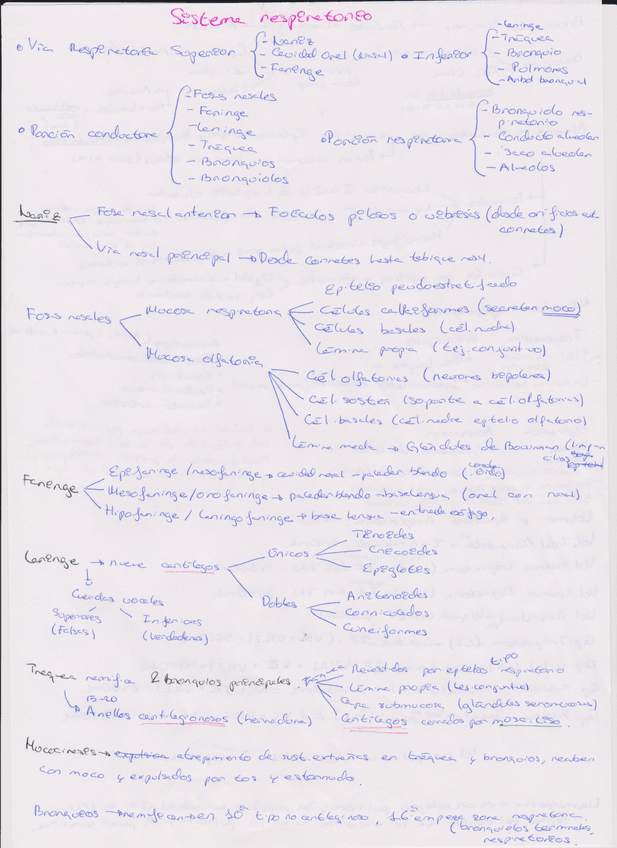 Sistema respiratorio
Vía Respiratoria Superior
- Nariz
- Cavidad oral (Nasal)
- Faringe
Inferior
- Laringe
- Tráquea
- Bronquio
- Pulmones
- Árbol bronquial
Porción conductora
- Fosas nasales
- Faringe
- Laringe
- Tráquea
- Bronquios
- Bronquiolos
Porción respiratoria
- Bronquiolo res-
piratorio
- Conducto alveolar
- Saco alveolar
- Alveolos
Nariz
Fosa nasal anterior → Folículos pilosos o vibrisas (desde orificios
cornetes)
Vía nasal principal → Desde cornetes hasta tabique nasal.
Epitelio pseudoestratificado
Fosas nasales
Mucosa respiratoria
Células caliciformes (secretan moco)
Células basales (cél. madre)
Lámina propia (tej. conjuntivo)
Mucosa olfatoria
Cél olfatorias (neuronas bipolares)
Cél. sostén (soporte a cél. olfatorias)
Cél. basales (cél. madre epitelio olfatorio)
Lámina media → Glándulas de Bowman (limpian
cilios
Faringe
Epifaringe / nasofaringe → cavidad nasal - paladar blando
Mesofaringe / orofaringe → paladar blando - base lengua (oral con nasal)
Hipofaringe / Laringofaringe → base lengua - entrada esófago,
Laringe → nueve cartílagos
Únicos
Tiroides
Cricoides
Epiglotis
Dobles
Aritenoides
Corniculados
Cuneiformes
Cuerdas vocales
Superiores
(Falsas)
Inferiores
(Verdaderas)
Tráquea ramifica 2 bronquios principales.
- Revestidos por epitelio tipo respiratorio
- Lámina propia (tej conjuntivo)
- Capa submucosa (glándulas seromucosas)
- Cartílagos cerrados por músc. liso.
15-20
Anillos cartilaginosos (herradura)
Mucociliares → expulsión atrapamiento de sust. extrañas en tráquea y bronquios, recubren
con moco y expulsados por tos y estornudo.
Bronquios → ramifican en 10ª tipo no cartilaginoso, 16ª empieza zona respiratoria.
(bronquiolos terminales,
respiratorios.